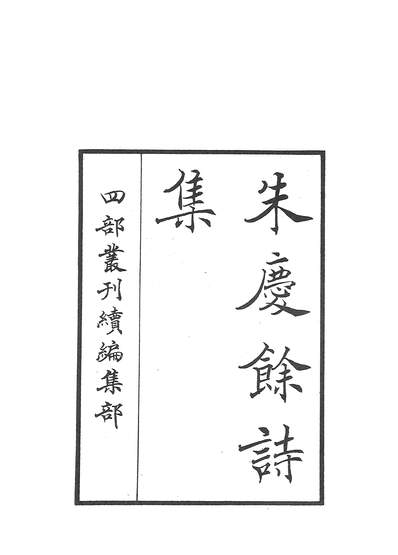 朱慶餘詩
集
四部叢刊續編集部